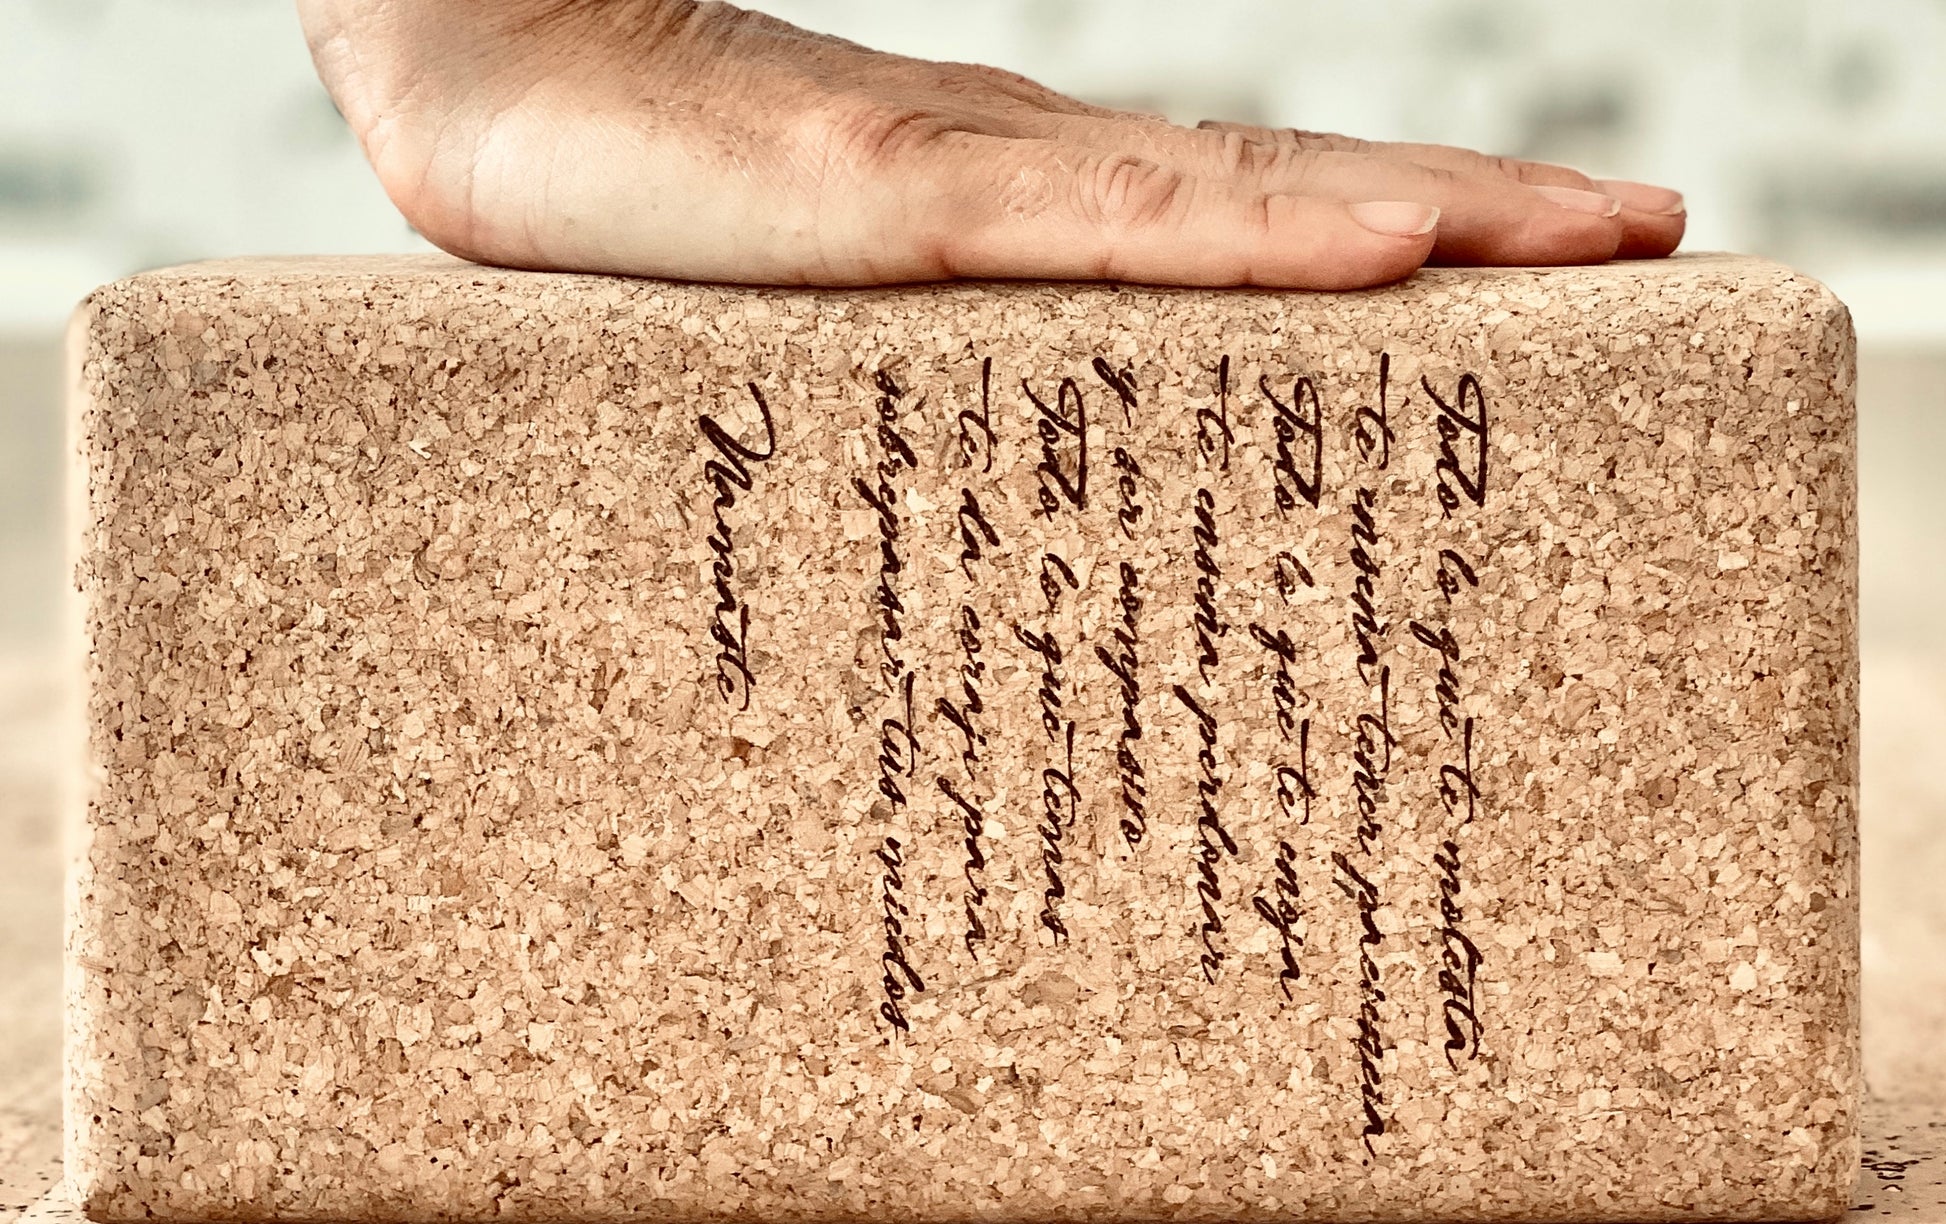 Todo lo que te molesta
te ensena tener paciencia.
Todo lo que te enoja
te ensena perdonar
y ser compasivo.
Todo lo que temas
te da coraje para
sobrepasar tus miedos
Namaste